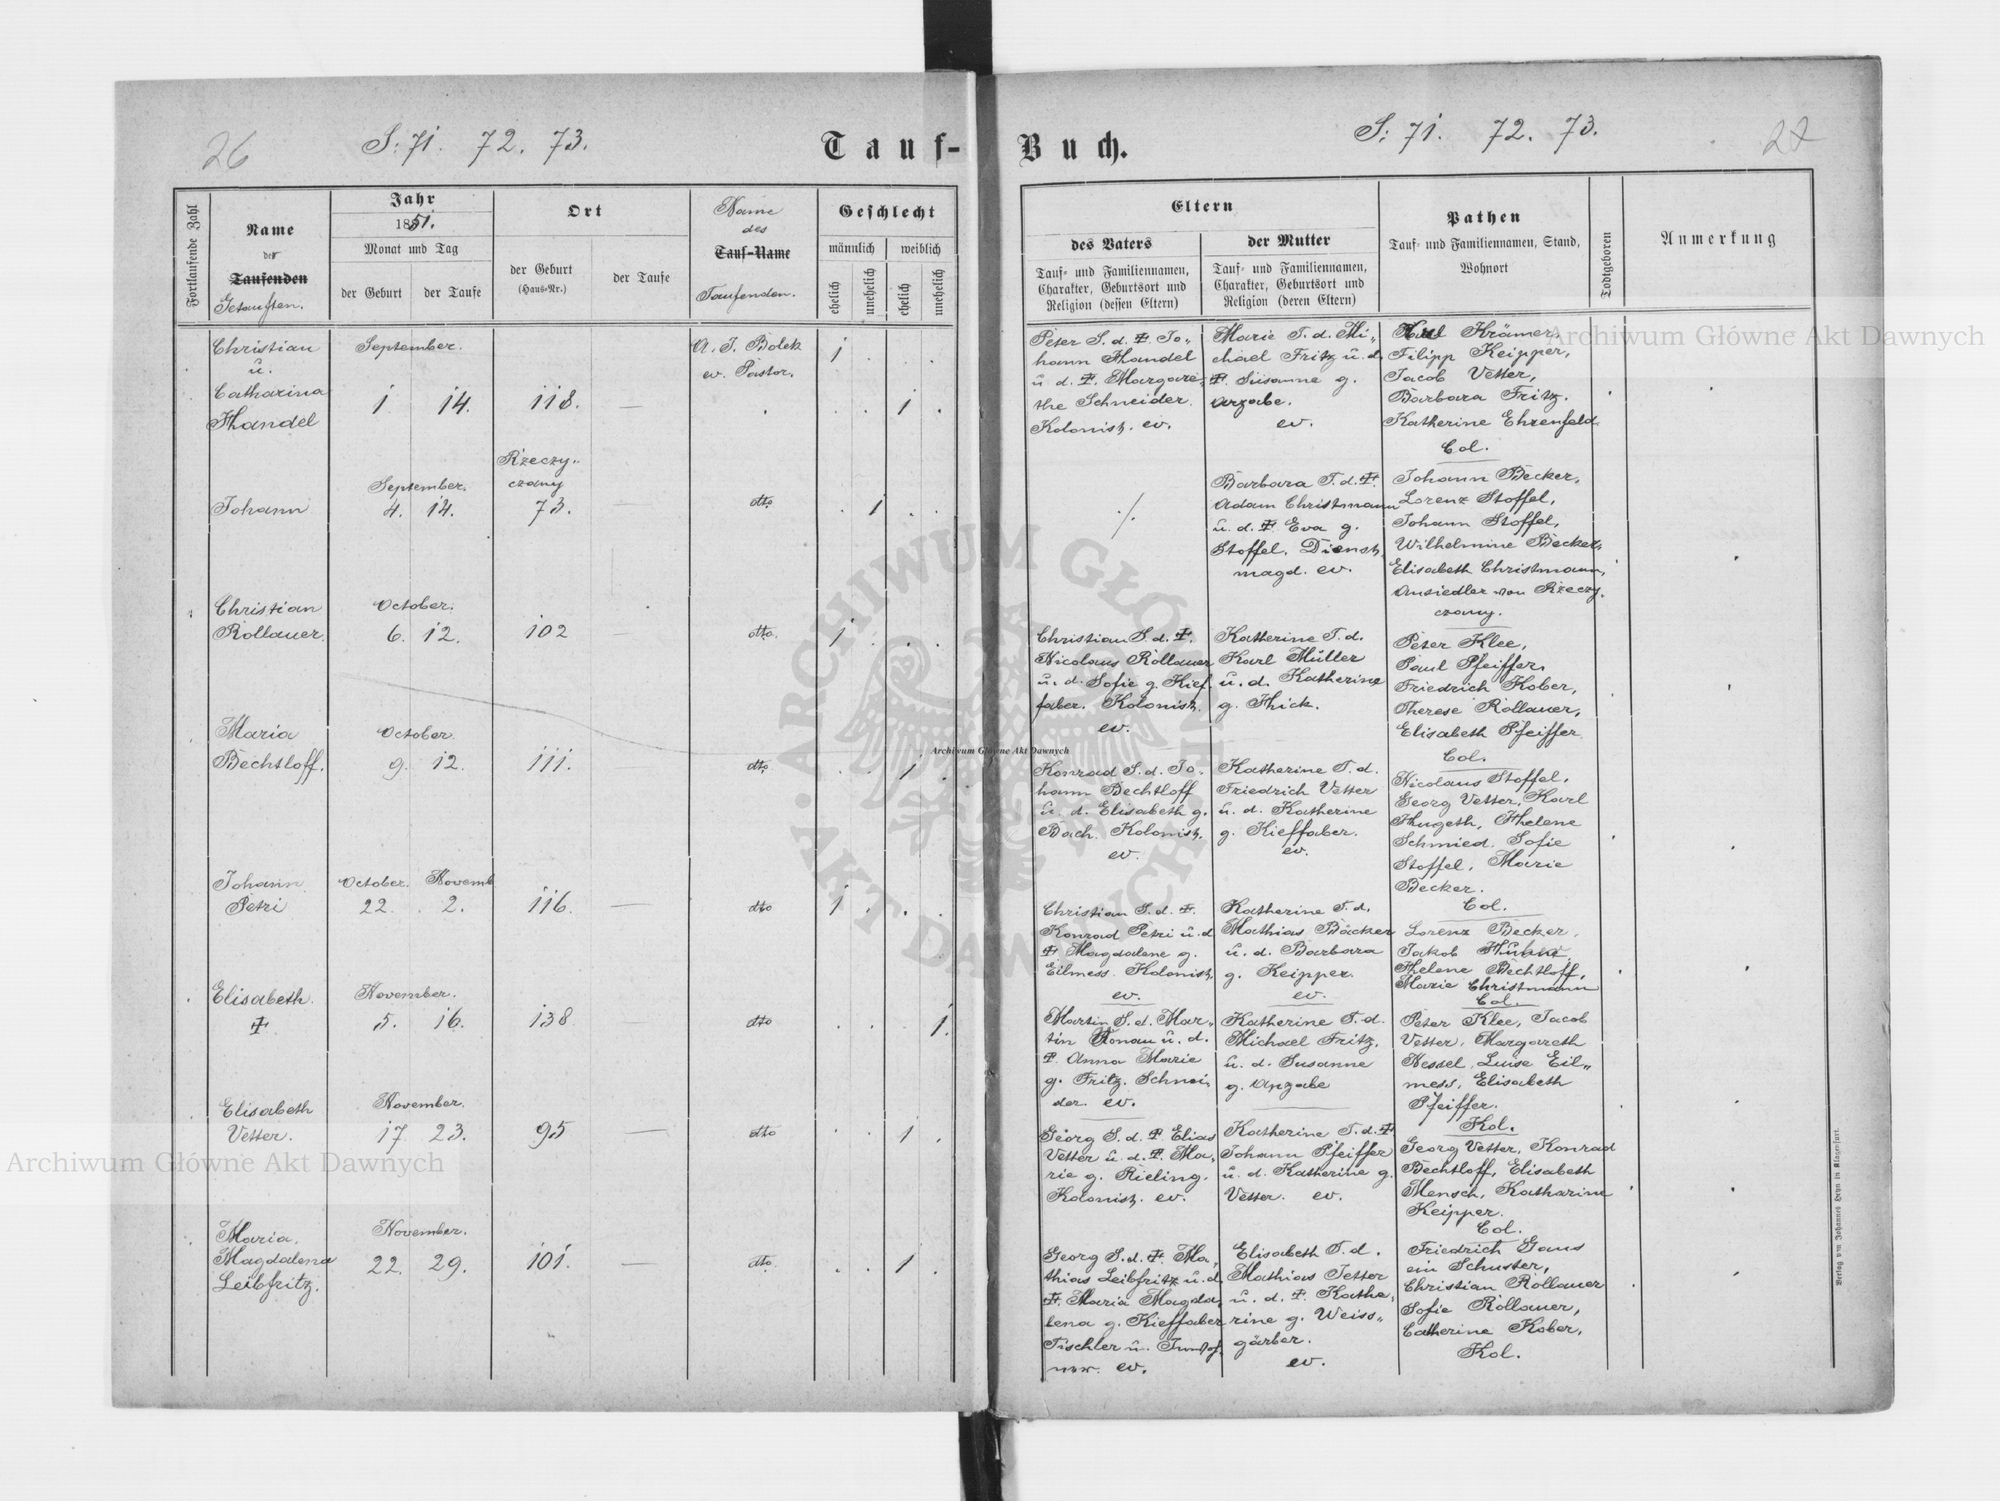 26
S: 71. 72. 73.
Tauf-
Fortlaufende Zahl
Name
der
Taufenden
Getauften.
Jahr
1851.
Monat und Tag
der Geburt
der Taufe
Ort
der Geburt
(Haus=Nr.)
der Taufe
Name
des
Tauf=Name
Taufenden.
Geschlecht
männlich
weiblich
ehelich
unehelich
ehelich
unehelich
Christian
u.
Catharina
Handel
September.
1 14.
118.
—
A. J. Bolek
ev. Pastor.
1
1
Johann
September.
4. 14.
Rzeczy-
czany
73.
—
dto
1
Christian
Rollauer.
October.
6. 12.
102
—
dto.
1
Maria
Bechtloff.
October.
9. 12.
111.
—
dto.
1
Johann
Petri
October. Novemb
22. 2.
116.
—
dto
1
Elisabeth.
‡
November.
5. 16.
138
—
dto
1.
Elisabeth
Vetter.
November.
17. 23.
95
—
dto
1
Maria
Magdalena
Leibfritz.
November.
22. 29.
101.
—
dto.
1
Buch.
S: 71. 72. 73.
Eltern
des Vaters
Tauf= und Familiennamen,
Charakter, Geburtsort und
Religion (dessen Eltern)
der Mutter
Tauf= und Familiennamen,
Charakter, Geburtsort und
Religion (deren Eltern)
Pathen
Tauf= und Familiennamen, Stand,
Wohnort
Todtgeboren
Anmerkung
Peter S. d. ‡. Jo-
hann Handel
u. d. ‡. Margare-
the Schneider.
Kolonist. ev.
Marie T. d. Mi-
chael Fritz u. d.
‡. Susanne g.
Anzabe.
ev.
Krämer,
Filipp Keipper,
Jacob Vetter,
Barbara Fritz.
Katherine Ehrenfeld.
Col.
./.
Barbara T. d. ‡.
Adam Christmann
u. d. ‡ Eva g.
Stoffel. Dienst-
magd. ev.
Johann Becker,
Lorenz Stoffel,
Johann Stoffel,
Wilhelmine Becker,
Elisabeth Christmann,
Ansiedler von Rzeczy-
czany.
Christian S. d. ‡.
Nicolaus Rollauer
u. d. Sofie g. Kief-
faber. Kolonist.
ev.
Katherine T. d.
Karl Müller
u. d. Katherine
g. Hick.
Peter Klee,
Paul Pfeiffer,
Friedrich Kober,
Therese Rollauer,
Elisabeth Pfeiffer.
Col.
Konrad S. d. Jo-
hann Bechtloff
u. d. Elisabeth g.
Bach. Kolonist.
ev.
Katherine T. d.
Friedrich Vetter
u. d. Katherine
g. Kieffaber.
ev.
Nicolaus Stoffel,
Georg Vetter, Karl
Hugeth, Helene
Schmied, Sofie
Stoffel, Marie
Becker.
Col.
Christian S. d. ‡.
Konrad Petri u. d
‡. Magdalene g.
Eilmess. Kolonist.
ev.
Katherine T. d.
Mathias Bäcker
u. d. Barbara
g. Keipper.
ev.
Lorenz Becker,
Jakob
Helene Bechtloff,
Marie Christmann
Col.
Martin S. d. Mar-
tin Konau u. d.
‡. Anna Marie
g. Fritz. Schnei-
der. ev.
Katherine T. d.
Michael Fritz,
u. d. Susanne
g. Anzabe
Peter Klee, Jacob
Vetter, Margareth
Hessel, Luise Eil-
mess, Elisabeth
Pfeiffer.
Kol.
Georg S. d. ‡. Elias
Vetter u. d. ‡. Ma-
rie g. Rieling.
Kolonist. ev.
Katherine T. d. ‡
Johann Pfeiffer
u. d. Katherine g.
Vetter. ev.
Georg Vetter, Konrad
Bechtloff, Elisabeth
Mensch, Katharine
Keipper.
Col.
Georg S. d. ‡. Ma-
thias Leibfritz u. d.
‡. Maria Magda-
lena g. Kieffaber
Tischler u.
ev.
Elisabeth T. d.
Mathias Jetter
u. d. ‡. Kathe-
rine g. Weiss-
gärber.
ev.
Friedrich Gans
ein Schuster,
Christian Rollauer
Sofie Rollauer,
Catherine Kober,
Kol.
Verlag von Johannes Heyn in Klagenfurt.
Archiwum Główne Akt Dawnych
Archiwum Główne Akt Dawnych
Archiwum Główne Akt Dawnych
ARCHIWUM GŁÓWNE AKT DAWNYCH